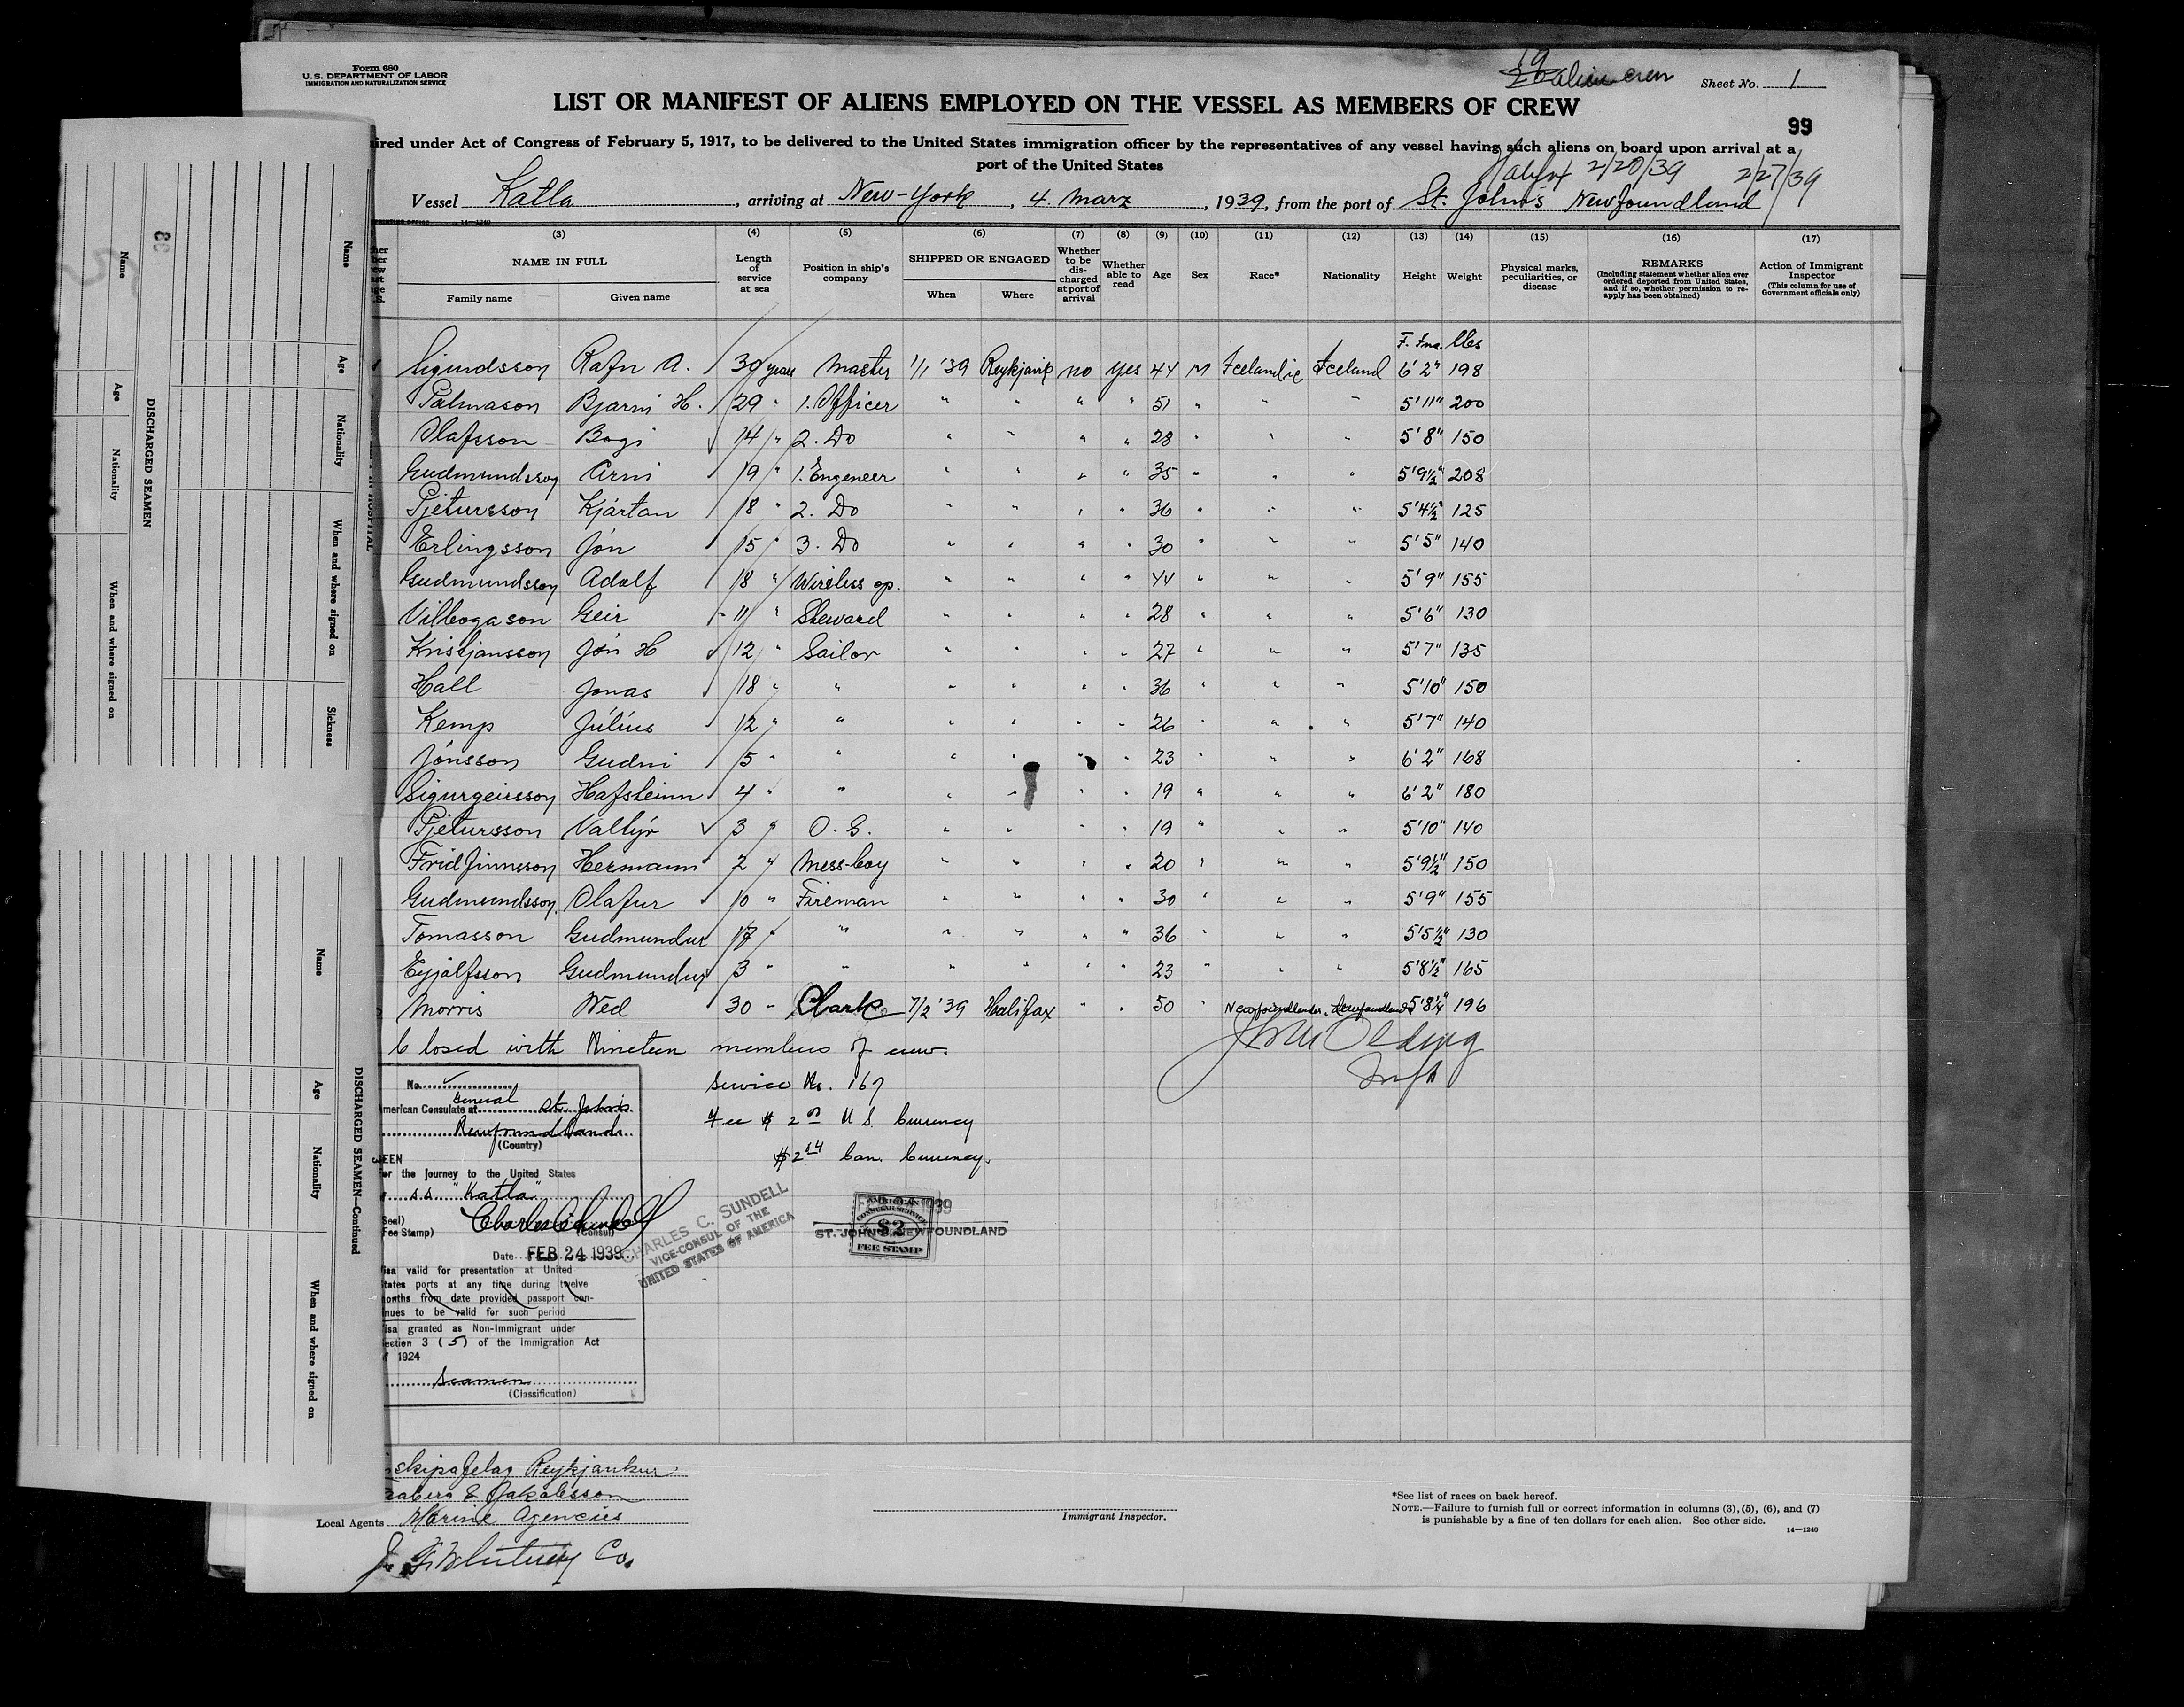 Form 680
U.S. DEPARTMENT OF LABOR
IMMIGRATION AND NATURALIZATION SERVICE
19
alien crew
Sheet No. 1
LIST OR MANIFEST OF ALIENS EMPLOYED ON THE VESSEL AS MEMBERS OF CREW
99
ired under Act of Congress of February 5, 1917, to be delivered to the United States immigration officer by the representatives of any vessel having such aliens on board upon arrival at a
port of the United States
2/20/39 2/27/39
Vessel Katla, arriving at New-York, 4. Marz, 1939, from the port of St. John's Newfoundland
14—1240
(3) (4) (5) (6) (7) (8) (9) (10) (11) (12) (13) (14) (15) (16) (17)
NAME IN FULL
Family name Given name
Length of service at sea
Position in ship's company
SHIPPED OR ENGAGED
When Where
Whether to be discharged at port of arrival
Whether able to read
Age
Sex
Race*
Nationality
Height
Weight
Physical marks, peculiarities, or disease
REMARKS
(Including statement whether alien ever ordered deported from United States, and if so, whether permission to reapply has been obtained)
Action of Immigrant Inspector
(This column for use of Government officials only)
F. Ins. lbs
Sigurdsson Rafn A. 30 years Master 1/1 '39 Reykjavik no yes 44 M Icelandic Iceland 6'2" 198
Palmason Bjarni H. 29 " 1. Officer " " " " 51 " " " 5'11" 200
Olafsson Bogi 14 " 2. Do " " " " 28 " " " 5'8" 150
Gudmundsson Arni 19 " 1. Engeneer " " " " 35 " " " 5'9½" 208
Pjetursson Kjartan 18 " 2. Do " " " " 36 " " " 5'4½" 125
Erlingsson Jón 15 " 3. Do " " " " 30 " " " 5'5" 140
Gudmundsson Adolf 18 " Wireless op. " " " " 44 " " " 5'9" 155
Vilbogason Geir 11 " Steward " " " " 28 " " " 5'6" 130
Kristjansson Jón H 12 " Sailor " " " " 27 " " " 5'7" 135
Hall Jonas 18 " " " " " " 36 " " " 5'10" 150
Kemp Július 12 " " " " " " 26 " " " 5'7" 140
Jónsson Gudni 5 " " " " " " 23 " " " 6'2" 168
Sigurgeirsson Hafsteinn 4 " " " " " " 19 " " " 6'2" 180
Pjetursson Valtýr 3 " O. S. " " " " 19 " " " 5'10" 140
Fridfinnsson Hermann 2 " Mess-boy " " " " 20 " " " 5'9½" 150
Gudmundsson Olafur 10 " Fireman " " " " 30 " " " 5'9" 155
Tomasson Gudmundur 17 " " " " " " 36 " " " 5'5½" 130
Eyjálfsson Gudmundur 3 " " " " " " 23 " " " 5'8½" 165
Morris Wed 30 " Clark 7/2 '39 Halifax " " 50 " Newfoundlander Newfoundland 5'8¼" 196
Closed with Nineteen members of crew.
No.
American Consulate General at St. John's
Newfoundland
(Country)
SEEN
for the journey to the United States
s.s "Katla"
(Seal)
(Fee Stamp)
(Consul)
Date FEB 24 1939
visa valid for presentation at United
States ports at any time during twelve
months from date provided passport con-
tinues to be valid for such period
Visa granted as Non-Immigrant under
Section 3 (5) of the Immigration Act
of 1924
Seamen
(Classification)
Service No. 167
Fee $2.00 U S. Currency
$2.04 Can. Currency.
CHARLES C. SUNDELL
VICE-CONSUL OF THE
UNITED STATES OF AMERICA
AMERICAN
CONSULAR SERVICE
$2
FEE STAMP
1939
ST. JOHN'S, NEWFOUNDLAND
skipafelag Reykjavikur
Faaberg & Jakobsson
Local Agents Marine Agencies
J. F. Whitney Co.
Immigrant Inspector.
*See list of races on back hereof.
NOTE.—Failure to furnish full or correct information in columns (3), (5), (6), and (7)
is punishable by a fine of ten dollars for each alien. See other side.
14—1240
DISCHARGED SEAMEN
Name Age Nationality When and where signed on
Name Age Nationality When and where signed on Sickness
IN HOSPITAL
DISCHARGED SEAMEN—Continued
Name Age Nationality When and where signed on